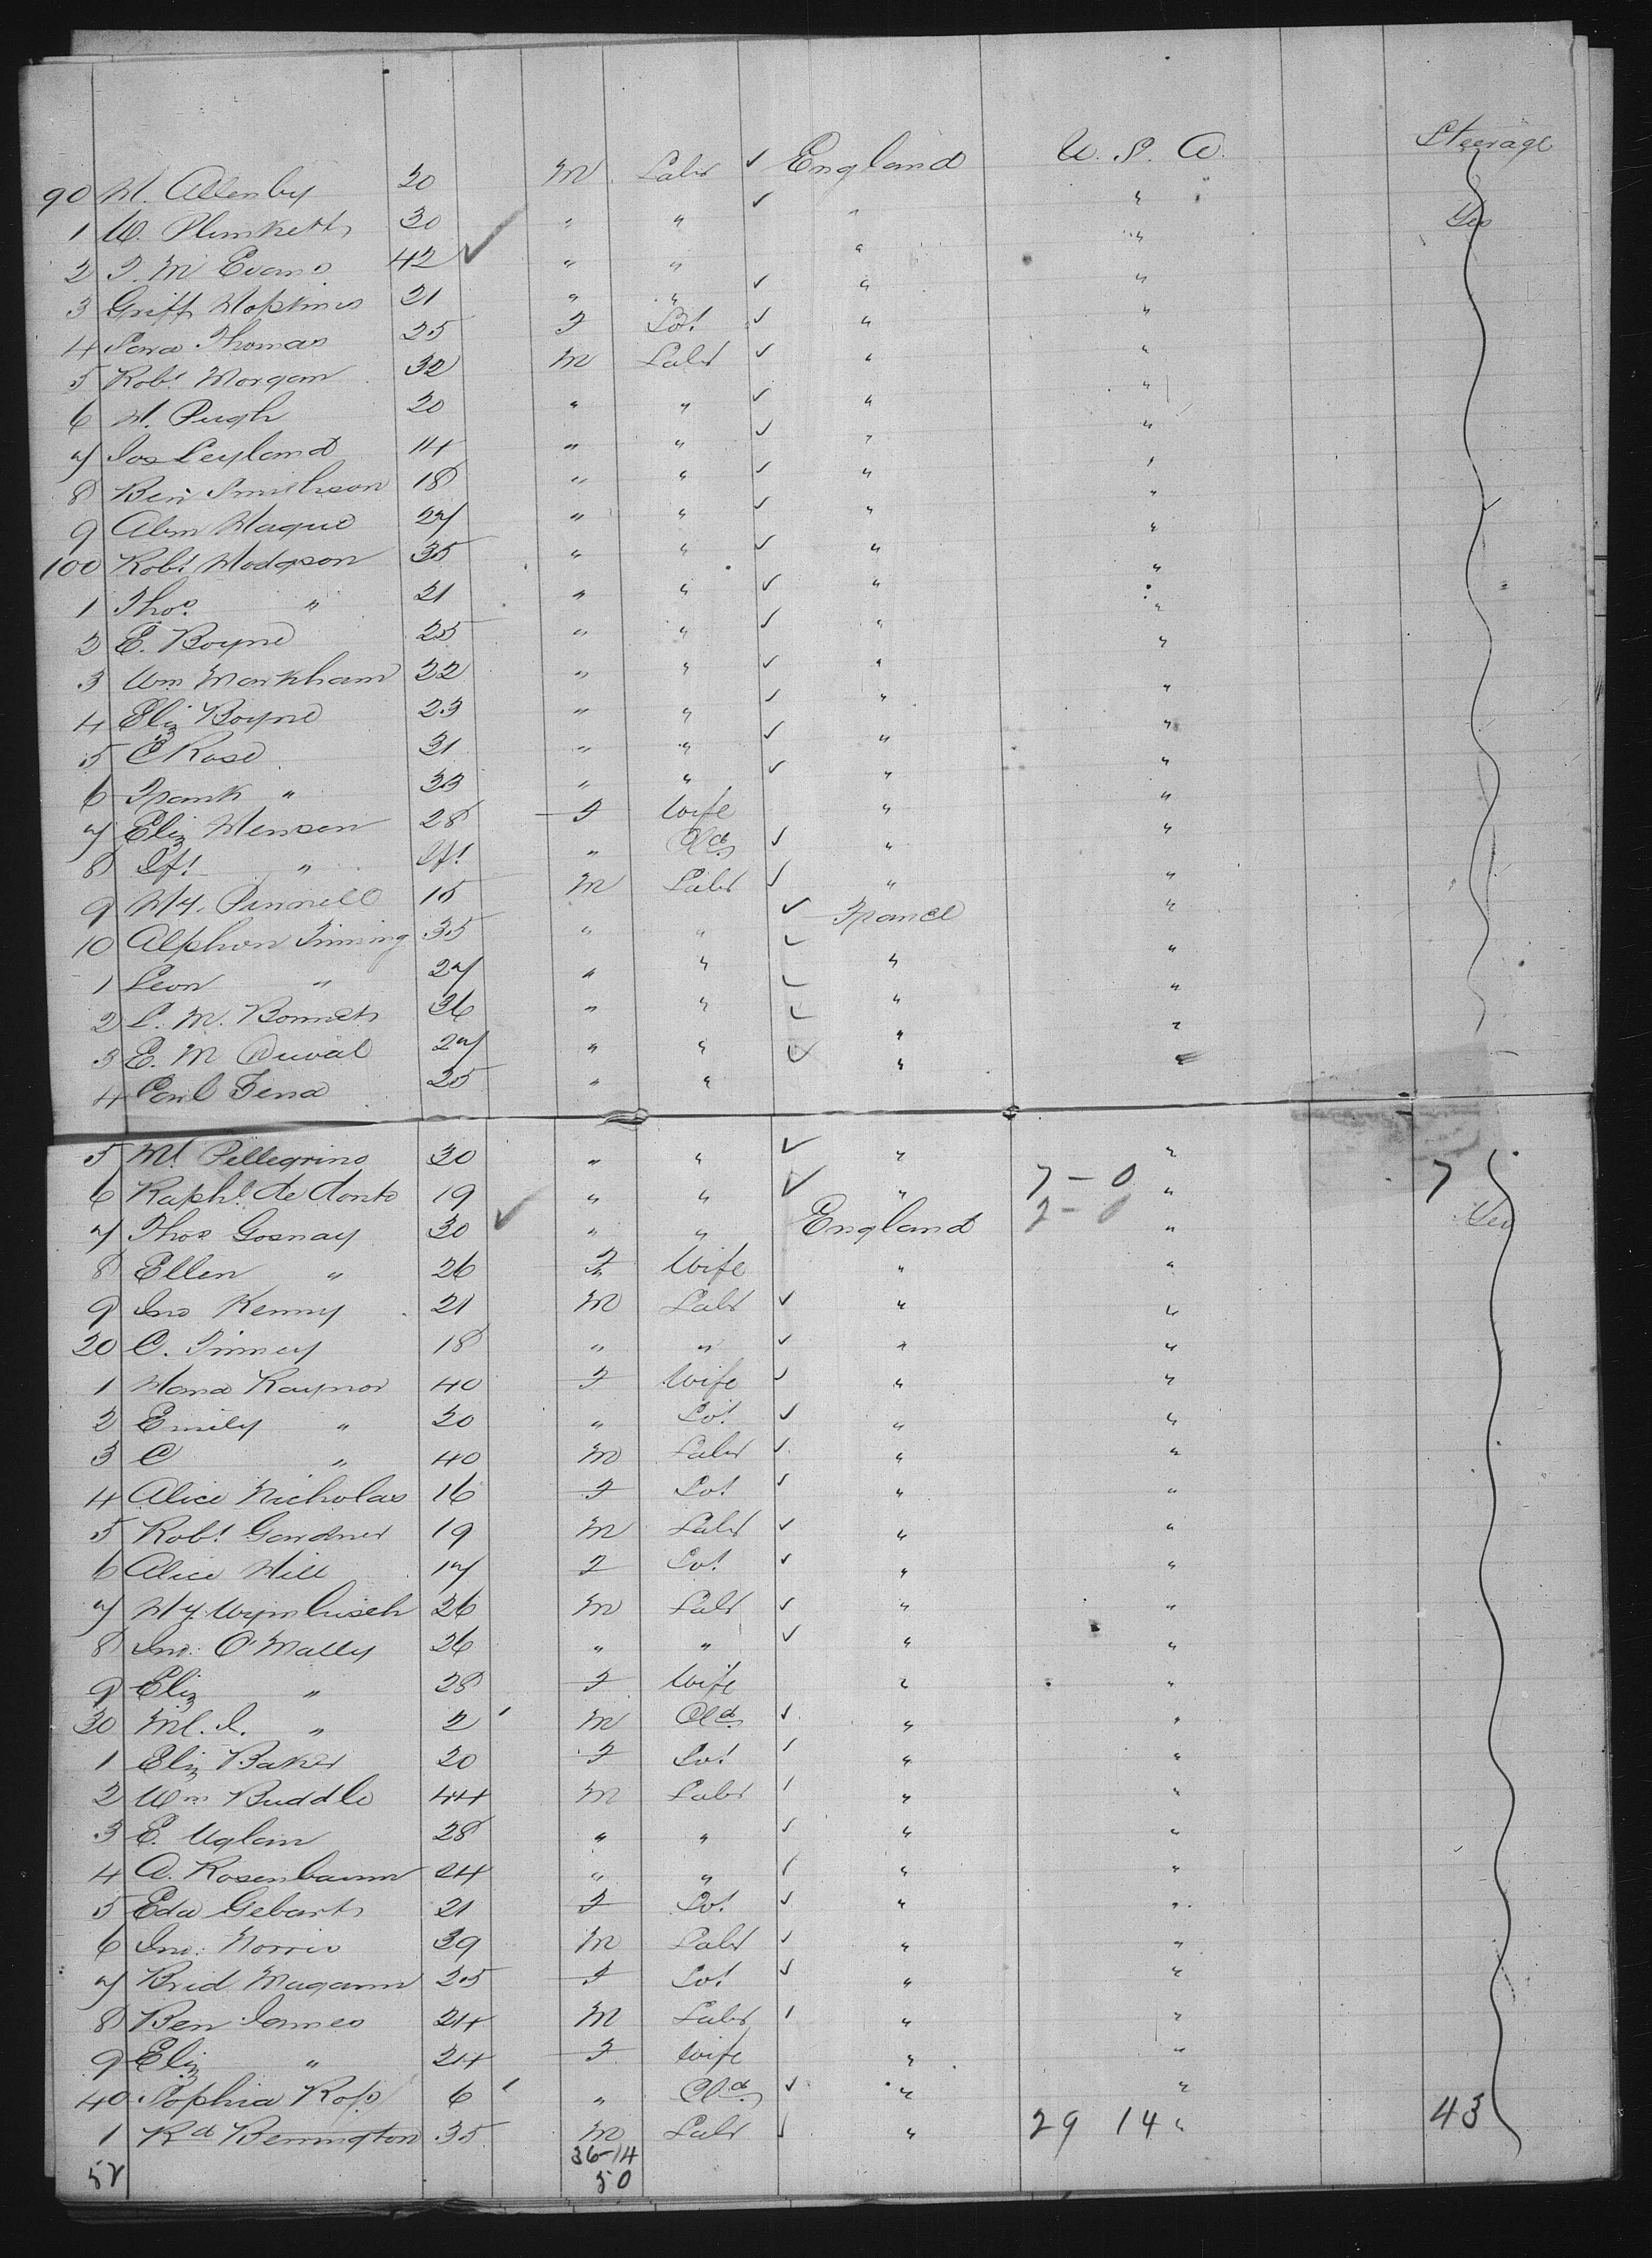 90 W. Allenby 20 M Labr ✓ England U. S. A. Steerage
1 W. Plunkett 30 " " ✓ " " Yes
2 T. M Evans 42 ✓ " " " "
3 Griff Hopkins 21 " " ✓ " "
4 Sara Thomas 25 F Spt ✓ " "
5 Robt Morgan 32 M Labr ✓ " "
6 H. Pugh 20 " " ✓ " "
7 Jos Leyland 14 " " ✓ " "
8 Ben Smithson 18 " " ✓ " "
9 Abm Hague 27 " " ✓ " "
100 Robt Hodgson 35 " " ✓ " "
1 Thos " 21 " " ✓ " "
2 E. Boyne 25 " " ✓ " "
3 Wm Markham 22 " " ✓ " "
4 Eliz Boyne 23 " " ✓ " "
5 C Rose 31 " " ✓ " "
6 Frank " 33 " " ✓ " "
7 Eliz Henson 28 F Wife " "
8 Ift " Ift " Cld ✓ " "
9 Hy. Pannell 15 M Labr ✓ " "
10 Alphon Finning 35 " " ✓ France "
1 Leon " 27 " " ✓ " "
2 L. M. Bonnet 36 " " ✓ " "
3 E. M Duval 27 " " ✓ " "
4 Carl Fena 25 " " ✓ " "
5 Mt Pellegrino 30 " " ✓ " "
6 Raphl de Donto 19 " " ✓ " 7 - 0 " 7
7 Thos Gosnay 30 ✓ " " England 2 - 0 " Yes
8 Ellen " 26 F Wife " "
9 Jno Kenny 21 M Labr ✓ " "
20 C. Finney 18 " " ✓ " "
1 Hana Raynor 40 F Wife ✓ " "
2 Emily " 20 " Spt ✓ " "
3 C " 40 M Labr ✓ " "
4 Alice Nicholas 16 F Spt ✓ " "
5 Robt Gardner 19 M Labr ✓ " "
6 Alice Hill 17 F Spt ✓ " "
7 Hy. Wymbusch 26 M Labr ✓ " "
8 Jno. O'Mally 26 " " ✓ " "
9 Eliz " 28 F Wife " "
30 Ml. J. " 2 M Cld ✓ " "
1 Eliz Baker 20 F Spt ✓ " "
2 Wm Buddle 44 M Labr ✓ " "
3 E. Uglain 28 " " ✓ " "
4 A. Rosenbaum 24 " " ✓ " "
5 Eda Gebart 21 F Spt ✓ " "
6 Jno. Norris 39 M Labr ✓ " "
7 Brid Magann 25 F Spt ✓ " "
8 Ben James 24 M Labr ✓ " "
9 Eliz " 24 F Wife " "
40 Sophia Ross 6 " Cld ✓ " "
1 Rd Bennington 35 M Labr ✓ " 29 14 " 43
52 36-14
50